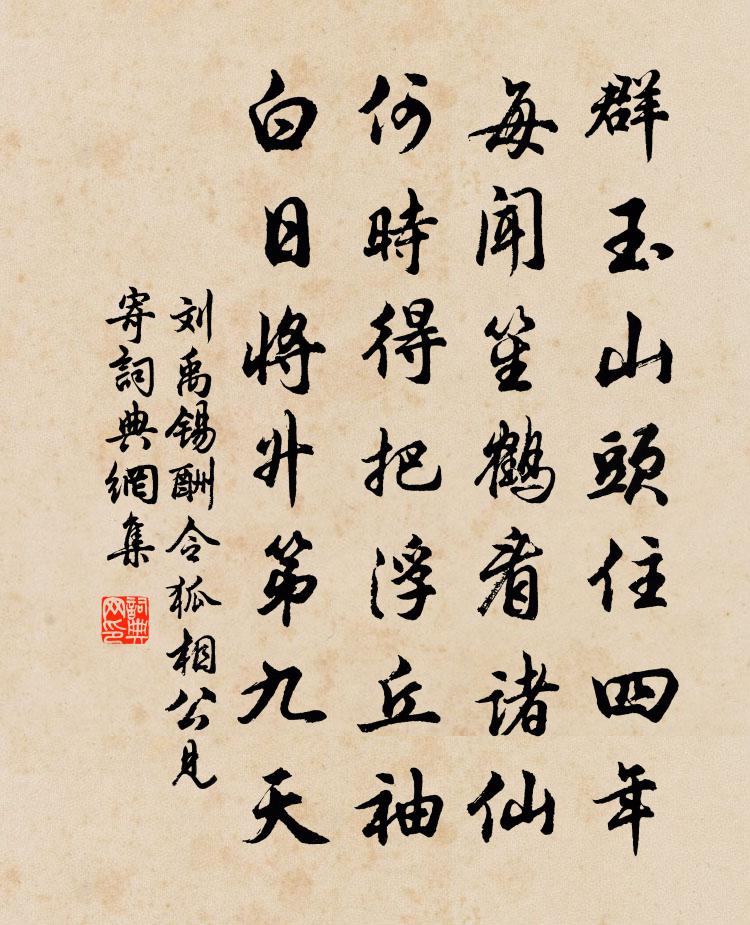 群玉山頭住四年
每聞笙鶴看諸仙
何時得把浮丘袖
白日將升第九天
刘禹锡酬令狐相公見
寄詞典網集
詞典网印